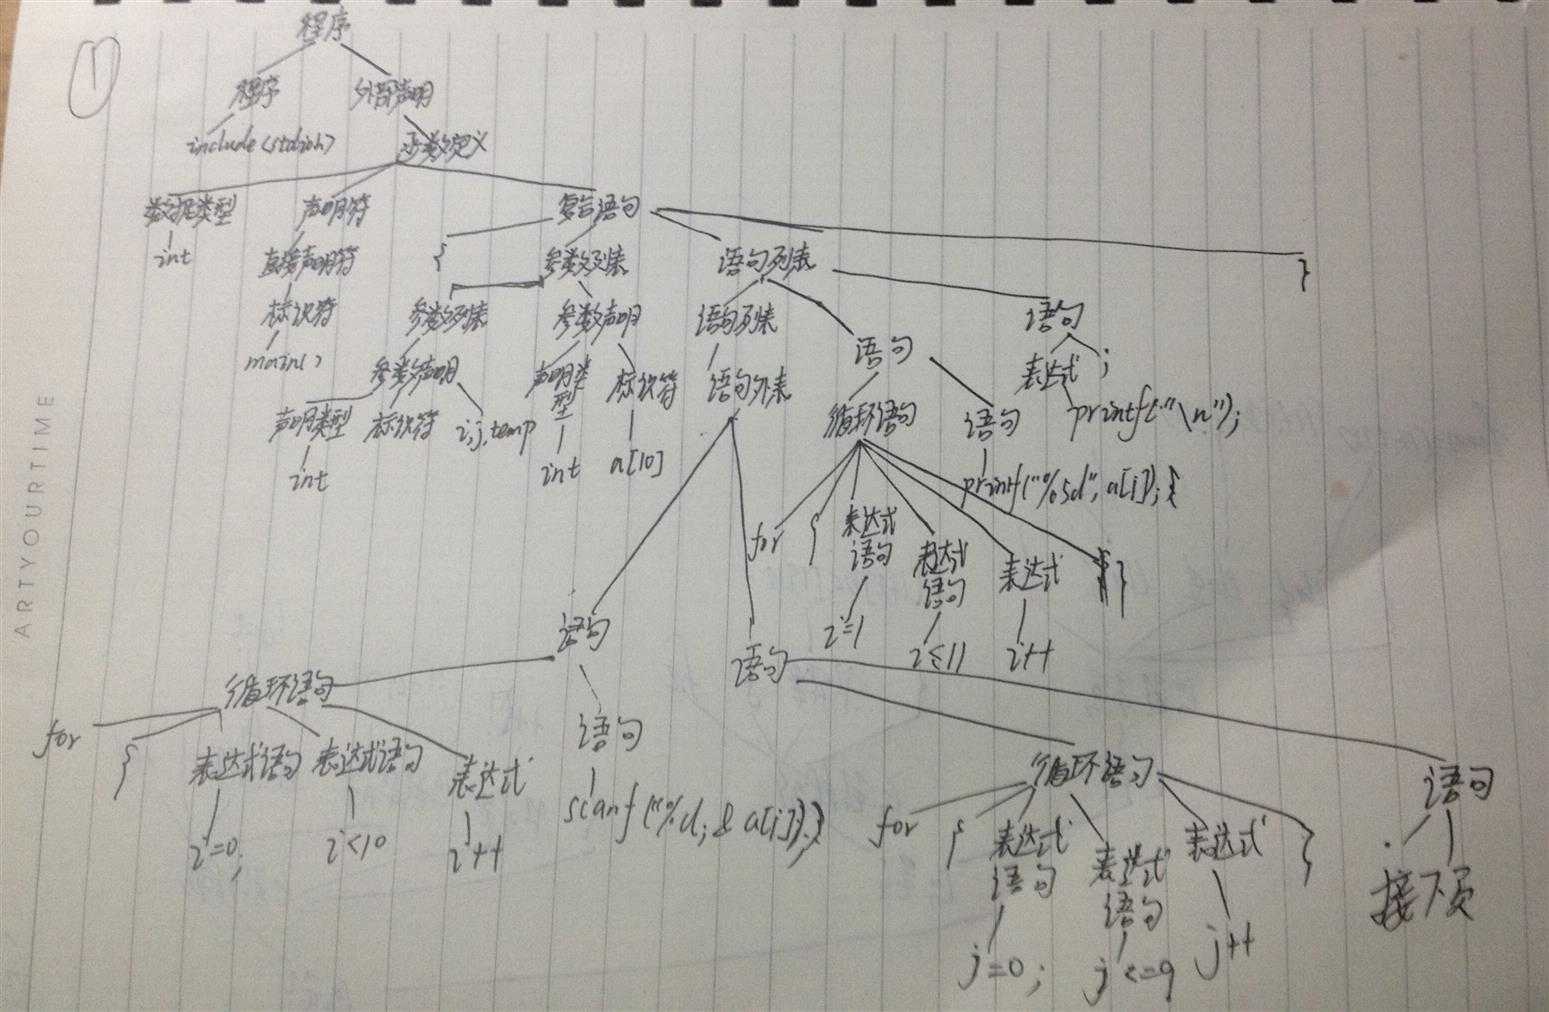 ①
程序
程序 外部声明
include<stdioh> 函数定义
数据类型 声明符 复合语句
int 直接声明符 { 参数列表 语句列表 }
标识符 参数列表 参数声明 语句列表 语句 语句
main() 参数声明 声明类型 标识符 语句列表 循环语句 语句 表达式 ;
声明类型 标识符 i,j,temp int a[10] printf("\n");
int printf("%5d",a[i]);}
for { 表达式语句 表达式语句 表达式 }
i=1 i≤11 i++
语句 语句
循环语句 语句 循环语句 语句
for { 表达式语句 表达式语句 表达式
i=0; i<10 i++ scanf("%d,& a[i]);}
for { 表达式语句 表达式语句 表达式 }
接下页
j=0; j<=9 j++
ARTYOURTIME